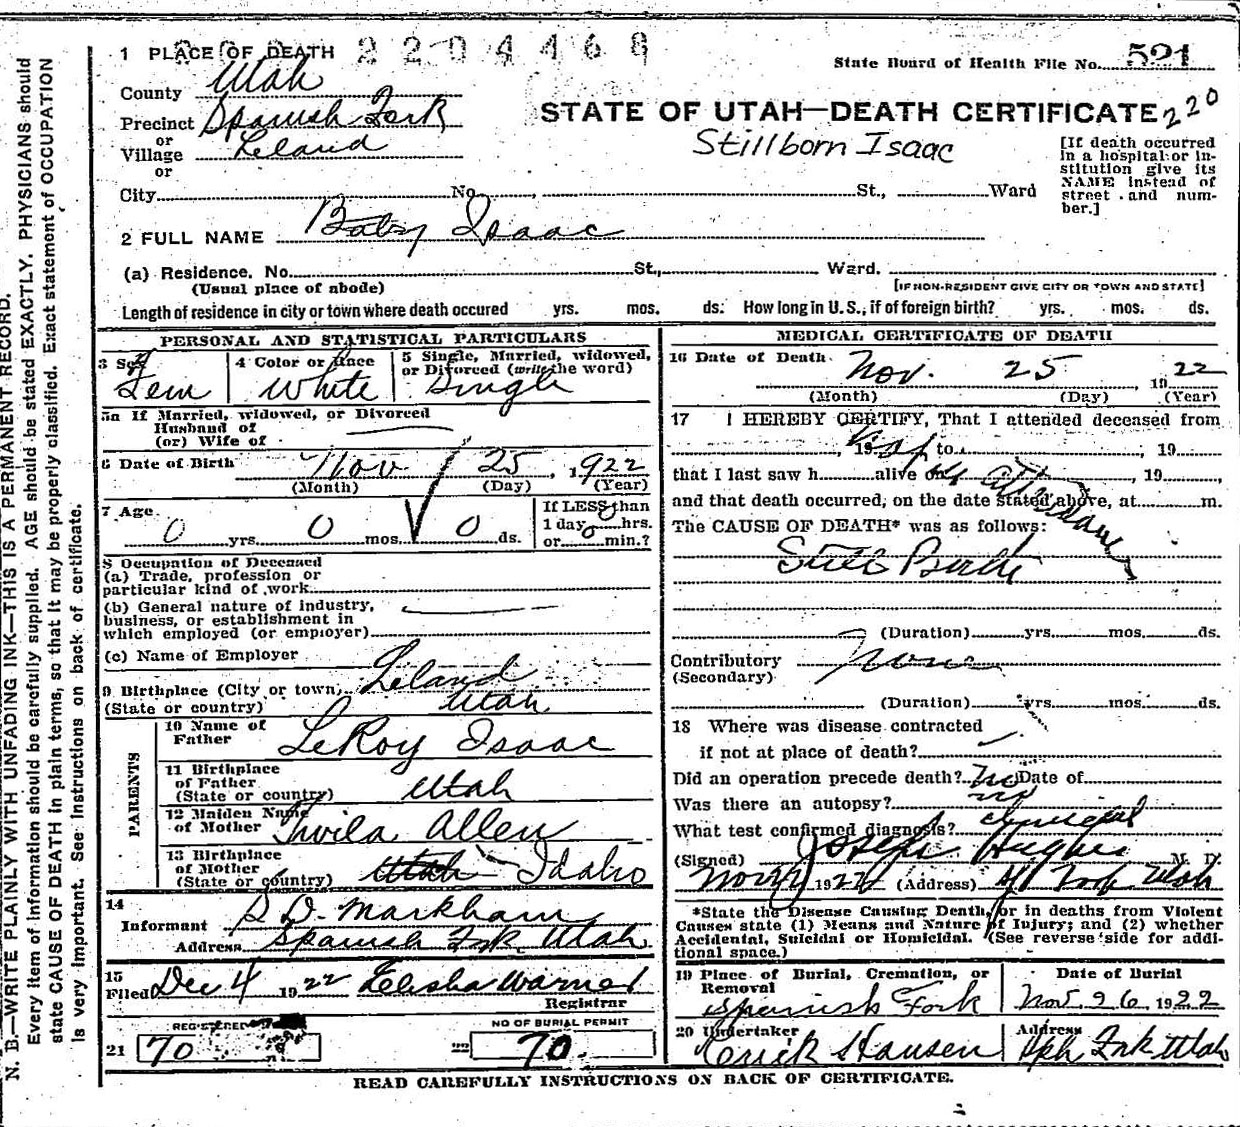 N. B.—WRITE PLAINLY WITH UNFADING INK—THIS IS A PERMANENT RECORD.
Every item of information should be carefully supplied. AGE should be stated EXACTLY. PHYSICIANS should
state CAUSE OF DEATH in plain terms, so that it may be properly classified. Exact statement of OCCUPATION
is very important. See instructions on back of certificate.
2204468
1 PLACE OF DEATH
State Board of Health File No. 521
County Utah
220
Precinct Spanish Fork
STATE OF UTAH—DEATH CERTIFICATE
or
Village Leland
Stillborn Isaac
or
City No. St., Ward
[If death occurred
in a hospital or in-
stitution give its
NAME instead of
street and num-
ber.]
2 FULL NAME Baby Isaac
(a) Residence. No. St., Ward.
(Usual place of abode)
[IF NON-RESIDENT GIVE CITY OR TOWN AND STATE]
Length of residence in city or town where death occured yrs. mos. ds. How long in U.S., if of foreign birth? yrs. mos. ds.
PERSONAL AND STATISTICAL PARTICULARS
3 Sex Fem
4 Color or Race White
5 Single, Married, widowed,
or Divorced (write the word)
Single
5a If Married, widowed, or Divorced
Husband of
(or) Wife of
6 Date of Birth Nov 25, 1922
(Month) (Day) (Year)
7 Age 0 yrs. 0 mos. 0 ds.
If LESS than
1 day 0 hrs.
or 0 min.?
8 Occupation of Deceased
(a) Trade, profession or
particular kind of work
(b) General nature of industry,
business, or establishment in
which employed (or employer)
(c) Name of Employer
9 Birthplace (City or town, Leland
(State or country) Utah
PARENTS
10 Name of
Father LeRoy Isaac
11 Birthplace
of Father
(State or country) Utah
12 Maiden Name
of Mother Twila Allen
13 Birthplace
of Mother
(State or country) Utah Idaho
14
Informant S D. Markham
Address Spanish Fork Utah
15
Filed Dec 4 1922 Elisha Warner
Registrar
REGISTERED
21 70
NO OF BURIAL PERMIT
22 70
MEDICAL CERTIFICATE OF DEATH
16 Date of Death Nov. 25, 1922
(Month) (Day) (Year)
17 I HEREBY CERTIFY, That I attended deceased from
, 19 to , 19
that I last saw h alive on , 19 ,
and that death occurred, on the date stated above, at m.
The CAUSE OF DEATH* was as follows:
Still Birth
(Duration) yrs. mos. ds.
Contributory None
(Secondary)
(Duration) yrs. mos. ds.
18 Where was disease contracted
if not at place of death?
Did an operation precede death? No Date of
Was there an autopsy? no
What test confirmed diagnosis? clinical
(Signed) Joseph Hughes M. D.
Nov 1922 (Address) Sp Fork Utah
*State the Disease Causing Death, or in deaths from Violent
Causes state (1) Means and Nature of Injury; and (2) whether
Accidental, Suicidal or Homicidal. (See reverse side for addi-
tional space.)
19 Place of Burial, Cremation, or
Removal
Spanish Fork
Date of Burial
Nov 26, 1922
20 Undertaker
Hansen
Address
Sph Frk Utah
READ CAREFULLY INSTRUCTIONS ON BACK OF CERTIFICATE.